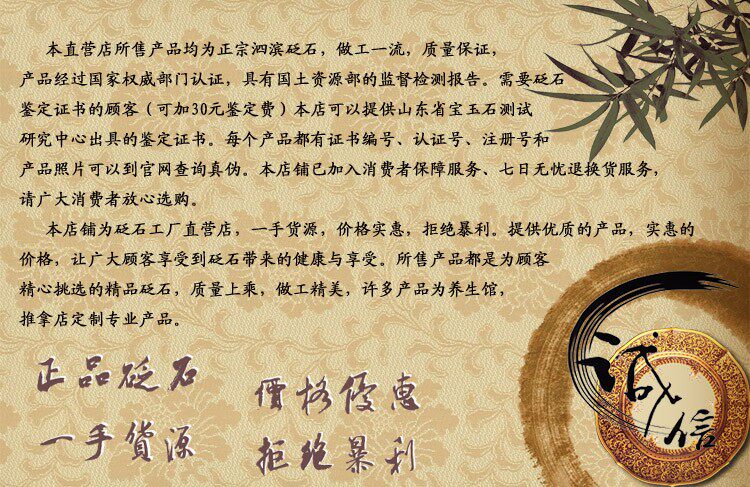 本直营店所售产品均为正宗泗滨砭石，做工一流，质量保证，
产品经过国家权威部门认证，具有国土资源部的监督检测报告。需要砭石
鉴定证书的顾客（可加30元鉴定费）本店可以提供山东省宝玉石测试
研究中心出具的鉴定证书。每个产品都有证书编号、认证号、注册号和
产品照片可以到官网查询真伪。本店铺已加入消费者保障服务、七日无忧退换货服务，
请广大消费者放心选购。
本店铺为砭石工厂直营店，一手货源，价格实惠，拒绝暴利。提供优质的产品，实惠的
价格，让广大顾客享受到砭石带来的健康与享受。所售产品都是为顾客
精心挑选的精品砭石，质量上乘，做工精美，许多产品为养生馆，
推拿店定制专业产品。
正品砭石
價格優惠
一手貨源
拒绝暴利
诚信